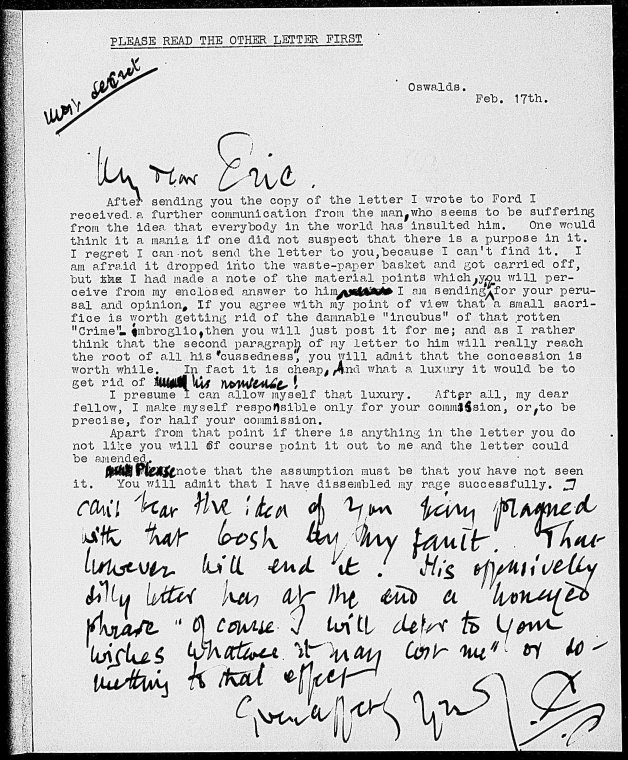 PLEASE READ THE OTHER LETTER FIRST
most secret
Oswalds.
Feb. 17th.
My dear Eric.
After sending you the copy of the letter I wrote to Ford I
received a further communication from the man,who seems to be suffering
from the idea that everybody in the world has insulted him. One would
think it a mania if one did not suspect that there is a purpose in it.
I regret I can not send the letter to you,because I can't find it. I
am afraid it dropped into the waste-paper basket and got carried off,
but I had made a note of the material points which,you will per-
ceive from my enclosed answer to him I am sending you for your peru-
sal and opinion. If you agree with my point of view that a small sacri-
fice is worth getting rid of the damnable "incubus" of that rotten
"Crime" imbroglio,then you will just post it for me; and as I rather
think that the second paragraph of my letter to him will really reach
the root of all his "cussedness", you will admit that the concession is
worth while. In fact it is cheap, And what a luxury it would be to
get rid of his nonvense!
I presume I can allow myself that luxury. After all, my dear
fellow, I make myself responsible only for your commission, or,to be
precise, for half your commission.
Apart from that point if there is anything in the letter you do
not like you will of course point it out to me and the letter could
be amended.
Please note that the assumption must be that you have not seen
it. You will admit that I have dissembled my rage successfully. I
can't bear the idea of you being plagued
with that bosh by my fault. That
however will end it. His offensively
silly letter has at the end a honeyed
phrase "of course I will defer to your
wishes whatever it may cost me" or so-
mething to that effect
Yours